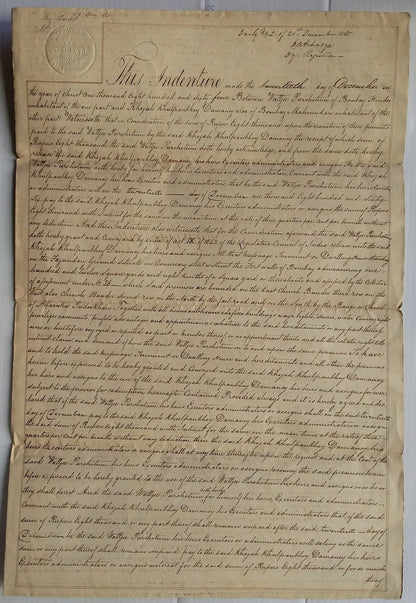 Early No 2 of 21st December 1865
This Indenture made the twentieth day of December in
the year of Christ One thousand eight hundred and sixty five Between Wallje Purshotum of Bombay Hindoo
inhabitant of the one part and Khojah Khulfanbhoy Damaney also of Bombay Mahomedan inhabitant of the
other part Witnesseth that in Consideration of the sum of Rupees Eight thousand upon the execution of these presents
paid to the said Wallje Purshotum by the said Khojah Khulfanbhoy Damaney the receipt of which sum of
Rupees Eight thousand the said Wallje Purshotum doth hereby acknowledge, and from the same doth hereby
release the said Khojah Khulfanbhoy Damaney his heirs Executors administrators and assigns He the said
Wallje Purshotum doth hereby for himself his heirs Executors and administrators Covenant with the said Khojah
Khulfanbhoy Damaney his heirs Executors and administrators that he the said Wallje Purshotum his heirs Executors
or administrators will on the twentieth day of December One thousand Eight hundred and Sixty
Six pay to the said Khojah Khulfanbhoy Damaney his Executors administrators or assigns the sum of Rupees
Eight thousand with Interest for the same in the meantime at the rate of three quarters per Cent per month without
any deduction. And this Indenture also witnesseth that for the Consideration aforesaid the said Wallje Purshotum
doth hereby grant and Convey under act of the Legislative Council of India release unto the said
Khojah Khulfanbhoy Damaney his heirs and assigns All that messuage Tenement or Dwelling House standing
on the Fazendary Ground situate in street without the Fort walls of Bombay admeasuring one
hundred and twelve Square yards and eight tenths of a Square yard or thereabouts and assessed by the Collector
of assessment under No which said premises are bounded on the East Church Bunder third row on the
West also Church Bunder second row on the North by the road and on the South by the House
of Together with all houses edifices buildings ways lights sewers watercourses
privileges easements profits advantages and appurtenances whatsoever to the said hereditaments or any part thereof
now or heretofore or reputed as part or member thereof or as appurtenant thereto and all the estate right title
interest claim and demand of him the said Wallje Purshotum in to and upon the same premises To have
and to hold the said messuage Tenement or Dwelling House and hereditaments and all other the premises
herein before expressed to be hereby granted and Conveyed unto the said Khojah Khulfanbhoy Damaney
his heirs and assigns to the use of the said Khojah Khulfanbhoy Damaney his heirs and assigns for ever
subject to the proviso for redemption hereinafter Contained Provided always and it is hereby agreed and de-
clared that if the said Wallje Purshotum his heirs Executors administrators or assigns shall on the said twentieth
day of December pay to the said Khojah Khulfanbhoy Damaney his Executors administrators or assigns
the said sum of Rupees Eight thousand with Interest for the same in the meantime at the rate of three
quarters per Cent per month without any deduction then the said Khojah Khulfanbhoy Damaney his
heirs Executors administrators or assigns shall at any time thereafter upon the request and at the Cost of the
said Wallje Purshotum his heirs Executors administrators or assigns reconvey the said premises herein
before expressed to be hereby granted to the use of the said Wallje Purshotum his heirs and assigns or as he or
they shall direct And the said Wallje Purshotum for himself his heirs Executors and administrators
Covenant with the said Khojah Khulfanbhoy Damaney his Executors and administrators that if the said
sum of Rupees Eight thousand or any part thereof shall remain unpaid after the said twentieth day of
December he the said Wallje Purshotum his heirs Executors or administrators will so long as the same
sum or any part thereof shall remain unpaid pay to the said Khojah Khulfanbhoy Damaney his heirs
Executors administrators or assigns interest for the said sum of Rupees Eight thousand or for so much
thereof